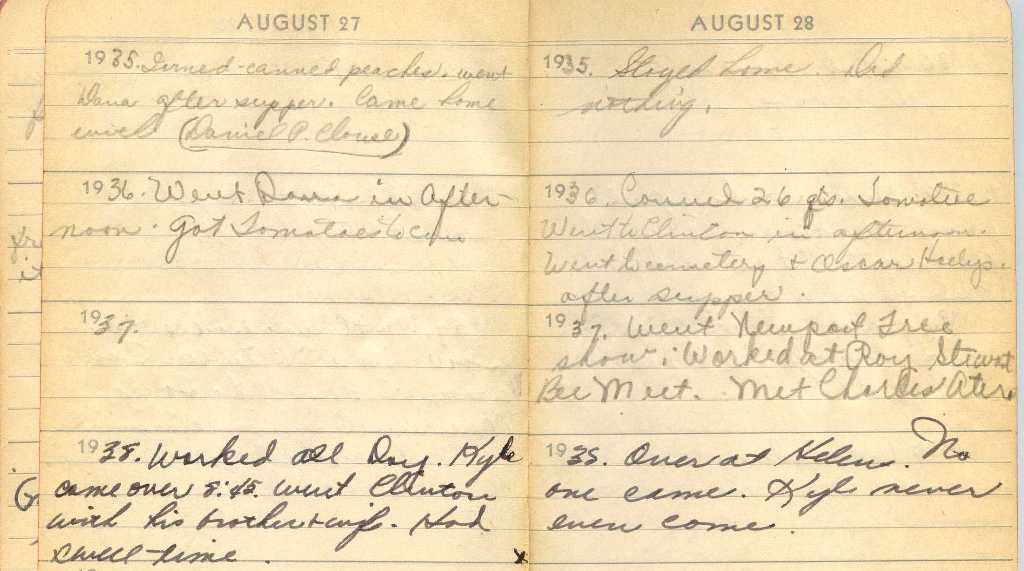 AUGUST 27
1935. canned peaches. went
Dana after supper. Came home
with (Daniel P. Clouse)
1936. Went Dana in After-
noon. Got Tomatoes to can
1937.
1938. Worked all Day. Kyle
came over 8:45. went Clinton
with his brother & wife. Had
swell time.
x
AUGUST 28
1935. Stayed home. Did
nothing.
1936. Canned 26 qts. Tomatoe
Went to Clinton in afternoon.
Went to cemetery & Oscar
after supper.
1937. Went Newport Free
show. Worked at Roy Stewart
Bee Meet. Met Charles
1938. Over at Helens. No
one came. Kyle never
even come.